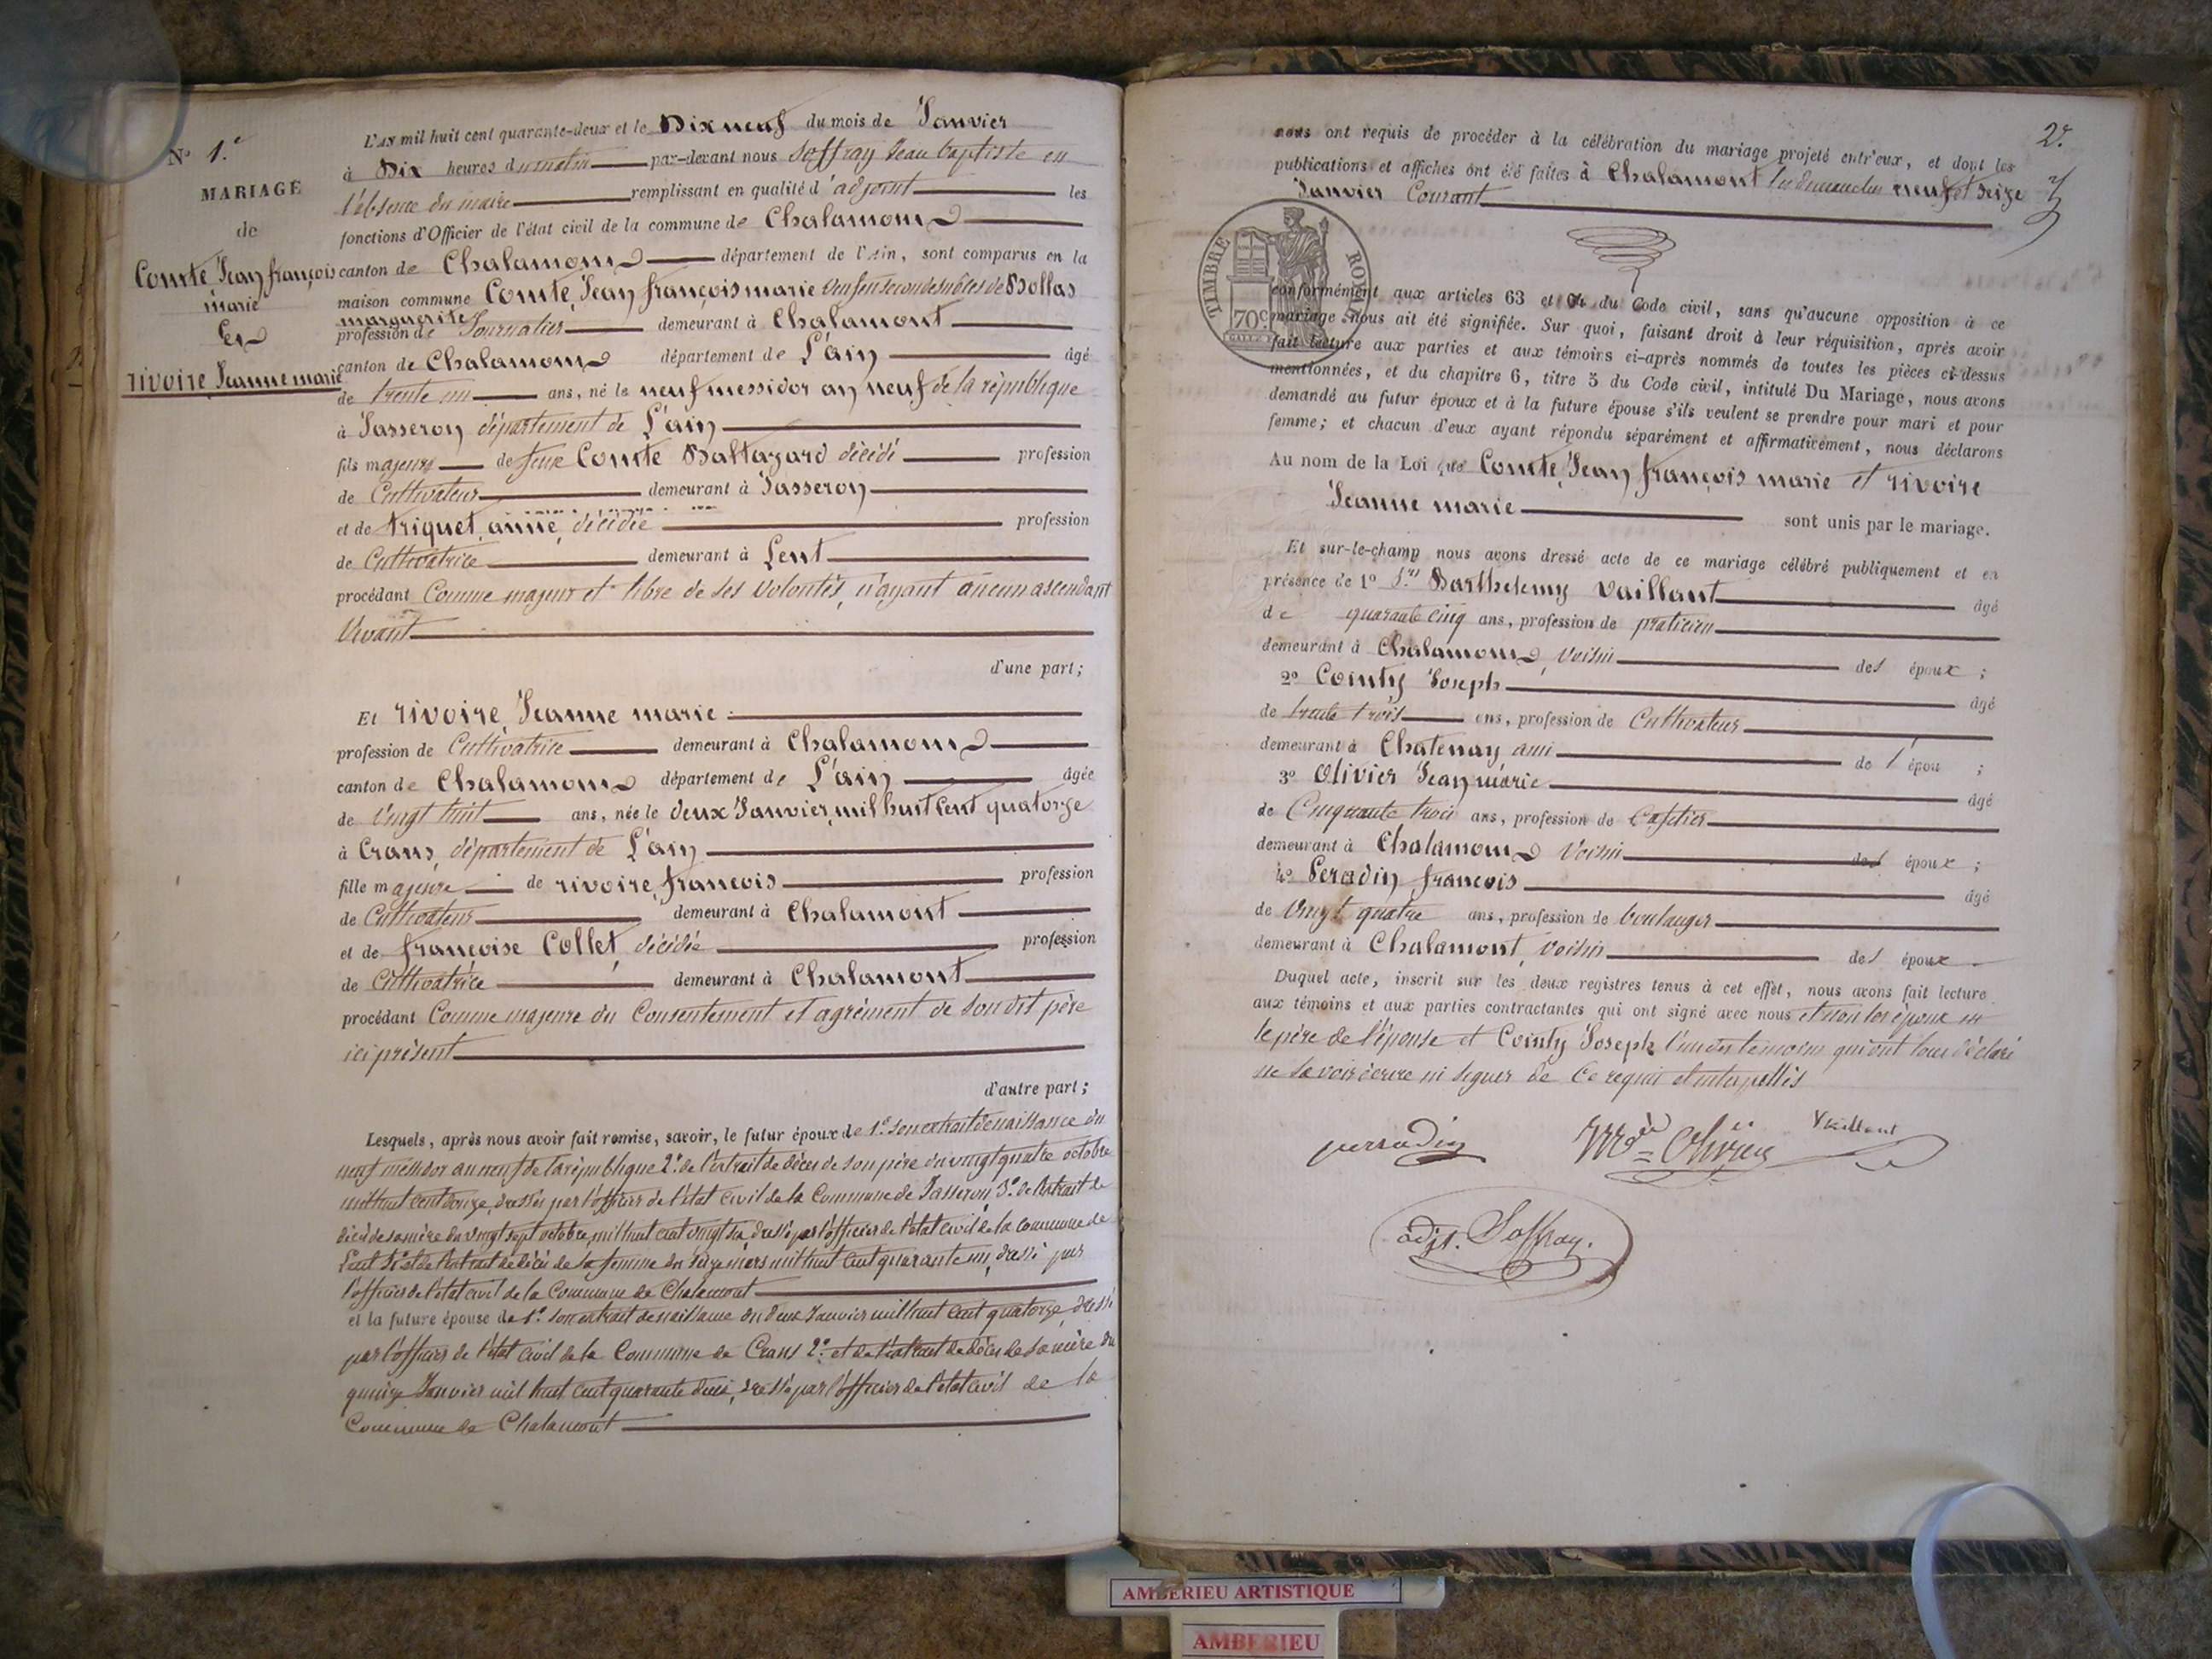 N° 1.er
MARIAGE
de
Comte Jean françois
marie
Et
rivoire Jeanne marie
L'AN mil huit cent quarante-deux et le Dix neuf du mois de Janvier
à Dix heures du matin par-devant nous Soffray Jean baptiste en
l'absence du maire remplissant en qualité d'adjoint les
fonctions d'Officier de l'état civil de la commune de Chalamont
canton de Chalamont département de l'Ain, sont comparus en la
maison commune Comte, Jean françois marie veuf en secondes nôces de Bollas
marguerite
profession de Journalier demeurant à Chalamont
canton de Chalamont département de L'ain âgé
de trente un ans, né le neuf messidor an neuf de la république
à Jasseron département de L'ain
fils majeur de feux Comte Baltazard décédé profession
de Cultivateur demeurant à Jasseron
et de triquet, anne, décédée profession
de Cultivatrice demeurant à Lent
procédant Comme majeur et libre de ses volontés, n'ayant aucun ascendant
vivant
d'une part;
Et rivoire, Jeanne marie
profession de Cultivatrice demeurant à Chalamont
canton de Chalamont département de L'ain âgée
de vingt huit ans, née le deux Janvier, mil huit cent quatorze
à Crans, département de L'ain
fille majeure de rivoire, françois profession
de Cultivateur demeurant à Chalamont
et de françoise Collet, décédée profession
de Cultivatrice demeurant à Chalamont
procédant Comme majeure du Consentement et agrément de son dit père
ici présent
d'autre part;
Lesquels, après nous avoir fait remise, savoir, le futur époux de 1.° son extrait de naissance du
neuf messidor an neuf de la république 2.° de l'extrait de décès de son père du vingt quatre octobre
mil huit cent douze, dressés par l'officier de l'état civil de la Commune de Jasseron 3.° de l'extrait de
décès de sa mère du vingt sept octobre, mil huit cent vingt six dressé par l'officier de l'état civil de la commune de
Lent et de l'extrait de décès de sa femme du seize mars mil huit cent quarante un, dressé par
l'officier de l'état civil de la Commune de Chalamont
et la future épouse de 1.° son extrait de naissance du deux Janvier mil huit cent quatorze, dressé
par l'officier de l'état civil de la Commune de Crans 2.° et de l'extrait de décès de sa mère du
quinze Janvier mil huit cent quarante deux, dressé par l'officier de l'état civil de la
Commune de Chalamont
2.
nous ont requis de procéder à la célébration du mariage projeté entr'eux, et dont les
publications et affiches ont été faites à Chalamont les dimanches neuf et seize
Janvier Courant
TIMBRE ROYAL
70c
conformément aux articles 63 et 64 du Code civil, sans qu'aucune opposition à ce
mariage nous ait été signifiée. Sur quoi, faisant droit à leur réquisition, après avoir
fait lecture aux parties et aux témoins ci-après nommés de toutes les pièces ci-dessus
mentionnées, et du chapitre 6, titre 5 du Code civil, intitulé Du Mariage, nous avons
demandé au futur époux et à la future épouse s'ils veulent se prendre pour mari et pour
femme; et chacun d'eux ayant répondu séparément et affirmativement, nous déclarons
Au nom de la Loi que Comte, Jean françois marie et rivoire
Jeanne marie sont unis par le mariage.
Et sur-le-champ nous avons dressé acte de ce mariage célébré publiquement et en
présence de 1° Barthelemy Vaillant âgé
de quarante cinq ans, profession de praticien
demeurant à Chalamont, voisin des époux;
2° Cointy Joseph âgé
de trente trois ans, profession de Cultivateur
demeurant à Chatenay ami de l'épou;
3° Olivier Jean marie âgé
de Cinquante trois ans, profession de Caffetier
demeurant à Chalamont voisin des époux;
4° Peradin, françois âgé
de vingt quatre ans, profession de boulanger
demeurant à Chalamont, voisin des époux
Duquel acte, inscrit sur les deux registres tenus à cet effet, nous avons fait lecture
aux témoins et aux parties contractantes qui ont signé avec nous et non les époux
le père de l'épouse et Cointy Joseph l'un des témoins qui ont tous déclaré
ne savoir écrire ni signer de ce requis et interpellés
perradin Olivier Vaillant
adjt. Soffray.
AMBERIEU ARTISTIQUE
AMBERIEU